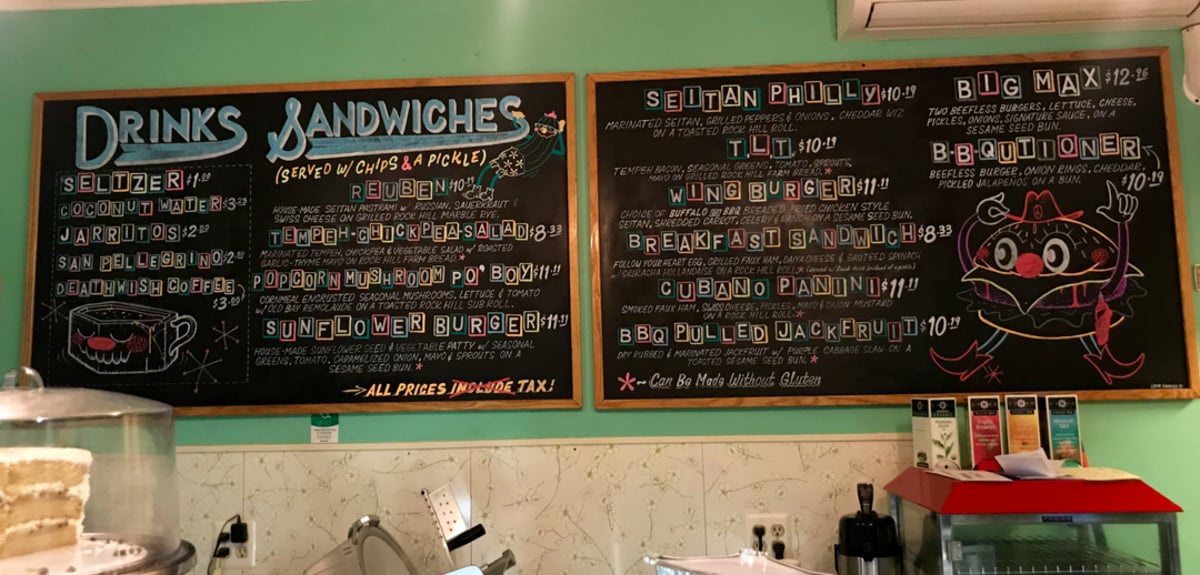 DRINKS
SELTZER $1.00
COCONUT WATER $3.25
JARRITOS $2.00
SAN PELLEGRINO
DEATHWISH COFFEE
$3.00
SANDWICHES
(SERVED W/ CHIPS & A PICKLE)
REUBEN $10.19
HOUSE-MADE SEITAN PASTRAMI W/ RUSSIAN, SAUERKRAUT &
SWISS CHEESE ON GRILLED ROCK HILL MARBLE RYE.
TEMPEH-CHICKPEA-SALAD $8.33
MARINATED TEMPEH, CHICKPEA & VEGETABLE SALAD W/ ROASTED
GARLIC-THYME MAYO ON ROCK HILL FARM BREAD.*
POPCORN MUSHROOM PO' BOY $11.11
CORNMEAL ENCRUSTED SEASONAL MUSHROOMS, LETTUCE & TOMATO
W/ OLD BAY REMOLAUDE ON A TOASTED ROCK HILL SUB ROLL.
SUNFLOWER BURGER $11.11
HOUSE-MADE SUNFLOWER SEED & VEGETABLE PATTY W/ SEASONAL
GREENS, TOMATO, CARAMELIZED ONION, MAYO & SPROUTS ON A
SESAME SEED BUN.*
→ ALL PRICES INCLUDE TAX!
SEITAN PHILLY $10.19
MARINATED SEITAN, GRILLED PEPPERS & ONIONS, CHEDDAR WIZ
ON A TOASTED ROCK HILL ROLL.
T.L.T. $10.19
TEMPEH BACON, SEASONAL GREENS, TOMATO, SPROUTS,
MAYO ON GRILLED ROCK HILL FARM BREAD.*
WING BURGER $11.11
CHOICE OF BUFFALO OR BBQ BREADED FRIED CHICKEN STYLE
SEITAN, SHREDDED CARROT, CELERY & RANCH ON A SESAME SEED BUN.
BREAKFAST SANDWICH $8.33
FOLLOW YOUR HEART EGG, GRILLED FAUX HAM, DAIYA CHEESE & SAUTEED SPINACH
W/ SRIRACHA HOLLANDAISE ON A ROCK HILL ROLL.*
CUBANO PANINI $11.11
SMOKED FAUX HAM, SWISS CHEESE, PICKLES, MAYO & DIJON MUSTARD
ON A ROCK HILL ROLL.*
BBQ PULLED JACKFRUIT $10.19
DRY RUBBED & MARINATED JACKFRUIT W/ PURPLE CABBAGE SLAW ON A
TOASTED SESAME SEED BUN.*
* ~ Can Be Made Without Gluten
BIG MAX $12.96
TWO BEEFLESS BURGERS, LETTUCE, CHEESE,
PICKLES, ONIONS, SIGNATURE SAUCE, ON A
SESAME SEED BUN.
B-B-QUTIONER
BEEFLESS BURGER, ONION RINGS, CHEDDAR,
PICKLED JALAPENOS ON A BUN.
$10.19